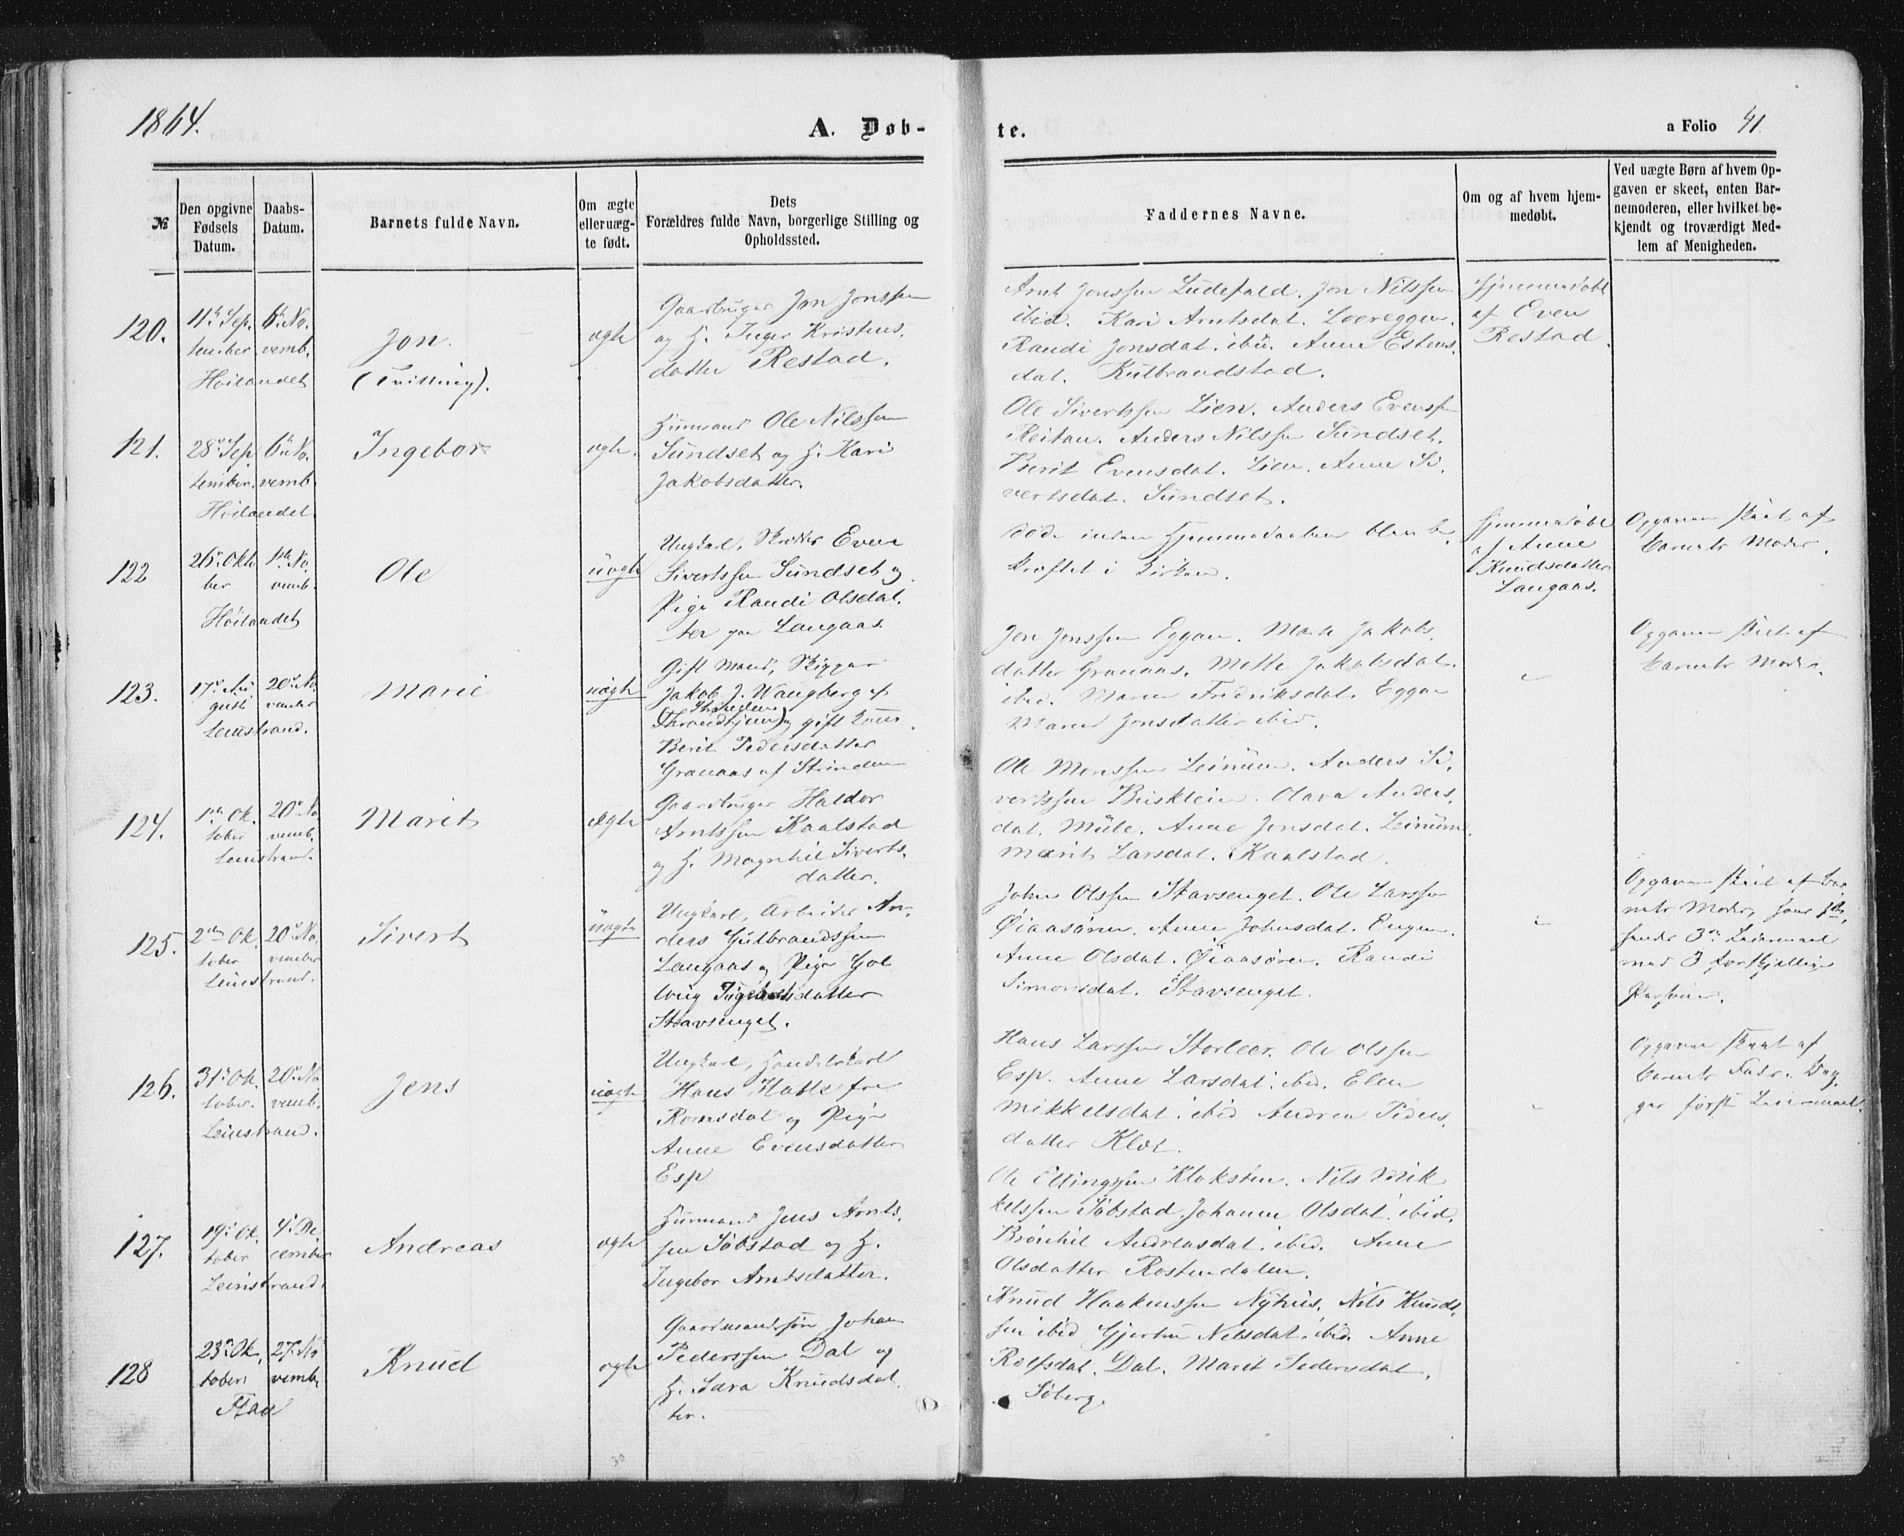 1864.
A. Døb-
te.
a Folio 41
№
Den opgivne Fødsels Datum.
Daabs-Datum.
Barnets fulde Navn.
Om ægte eller uægte født.
Dets Forældres fulde Navn, borgerlige Stilling og Opholdssted.
Faddernes Navne.
Om og af hvem hjemmedøbt.
Ved uægte Børn af hvem Opgaven er skeet, enten Barnemoderen, eller hvilket bekjendt og troværdigt Medlem af Menigheden.
120.
11te Sep.
tember
Høilandet
6te No.
vemb.
Jon
(Tvilling).
ægte
Gaardbruger Jon Jonssen
og H. Inger Kristens.
datter Restad.
Arnt Jonssen Ludefald. Jon Nilssen
ibid. Kari Arntsdat. Loereggen.
Randi Jonsdat. ibid. Anne Estens.
dat. Kulbrandstad.
Hjemmedøbt
af Even
Restad.
121.
28de Sep
tember.
Høilandet
6te No.
vemb.
Ingebor
ægte.
Husmand Ole Nilssen
Sundset og H. Kari
Jakobsdatter.
Ole Sivertssen Lien. Anders Evenssen
Reitan. Anders Nilssen Sundset.
Berit Evensdat. Lien. Anne Si.
vertsdat. Sundset.
122
26de Okto
ber
Høilandet
1ste No.
vemb.
Ole
uægte
Ungkarl, Skrædder Even
Sivertssen Sundset og
Pige Randi Olsdat.
ter paa Langaas
Døde inden Hjemmedaaben blev be
kræftet i Kirken.
Hjemmedøbt
af Anne
Knudsdatter
Langaas.
Opgaven skeet af
Barnets Moder.
123.
17de Au
gust
Leinstrand.
20de No.
vember
Marie
uægte
Gift Mand,
Jakob J. Waugberg af
Throndhjem) og gift Kone
Berit Pedersdatter
Granaas af Strinden
Jon Jonssen Eggan. Marte Jakobs.
datter Granaas. Mette Jakobsdat.
ibid. Maren Fredriksdat. Eggan
Maren Jonsdatter ibid.
Opgaven skeet af
Barnets Moder.
124.
1ste Ok.
tober
Leinstrand.
20de No
vemb.
Marit
ægte
Gaardbruger Haldor
Arntssen Kaalstad
og H. Magnhil Siverts.
datter.
Ole Monssen Leinum. Anders Si.
vertssen Busklein. Olava Anders.
dat. Mule. Anne Jensdat. Leinum.
Marit Larsdat. Kaalstad.
125.
2den Ok.
tober
Leinstrand.
20de No.
vember
Sivert
uægte
Ungkarl, Arbeider An.
ders Gulbrandssen
Langaas og Pige Gol
lovig Ingebrigtsdatter
Stavsenget.
John Olssen Stavsenget. Ole Larssen
Øiaasøren. Anne Johnsdat. Engen.
Anne Olsdat. Øiaasøren. Randi
Simonsdat. Stavsenget.
Opgaven skeet af Bar
nets Moder,
3die Leiermaal
med 3 forskjellige
Personer.
126.
31te Ok.
tober.
Leinstrand.
20de No.
vemb.
Jens
uægte
Ungkarl, Handelskarl
Hans Hatle fra
Romsdal og Pige
Anne Evensdatter
Esp
Hans Larssen Storleer. Ole Olssen
Esp. Anne Larsdat. ibid. Elen
Mikkelsdat. ibid Andrea Peders.
datter Klæt.
Opgaven skeet af
Barnets Fader. Beg
ges første Leiermaal.
127.
19de Ok.
tober
Leinstrand.
4de De
cember
Andreas
ægte
Husmand Jens Arnts.
sen Søbstad og H.
Ingebor Arntsdatter.
Ole Ellingssen Kloksten. Nils Mik
kelssen Søbstad Johanne Olsdat. ibid.
Brønhil Andreasdat. ibid. Anne
Olsdatter Rostendalen.
128
23de Ok.
tober.
Flaa
27de No
vemb.
Knud
ægte
Gaardmandssøn Johan
Pederssen Dal og
H. Sara Knudsdat.
ter.
Knud Haakenssen Nyhus. Nils Knuds.
sen ibid Gjertru Nilsdat. ibid. Anne
Rolfsdat. Dal. Marit Pedersdat.
Søberg.